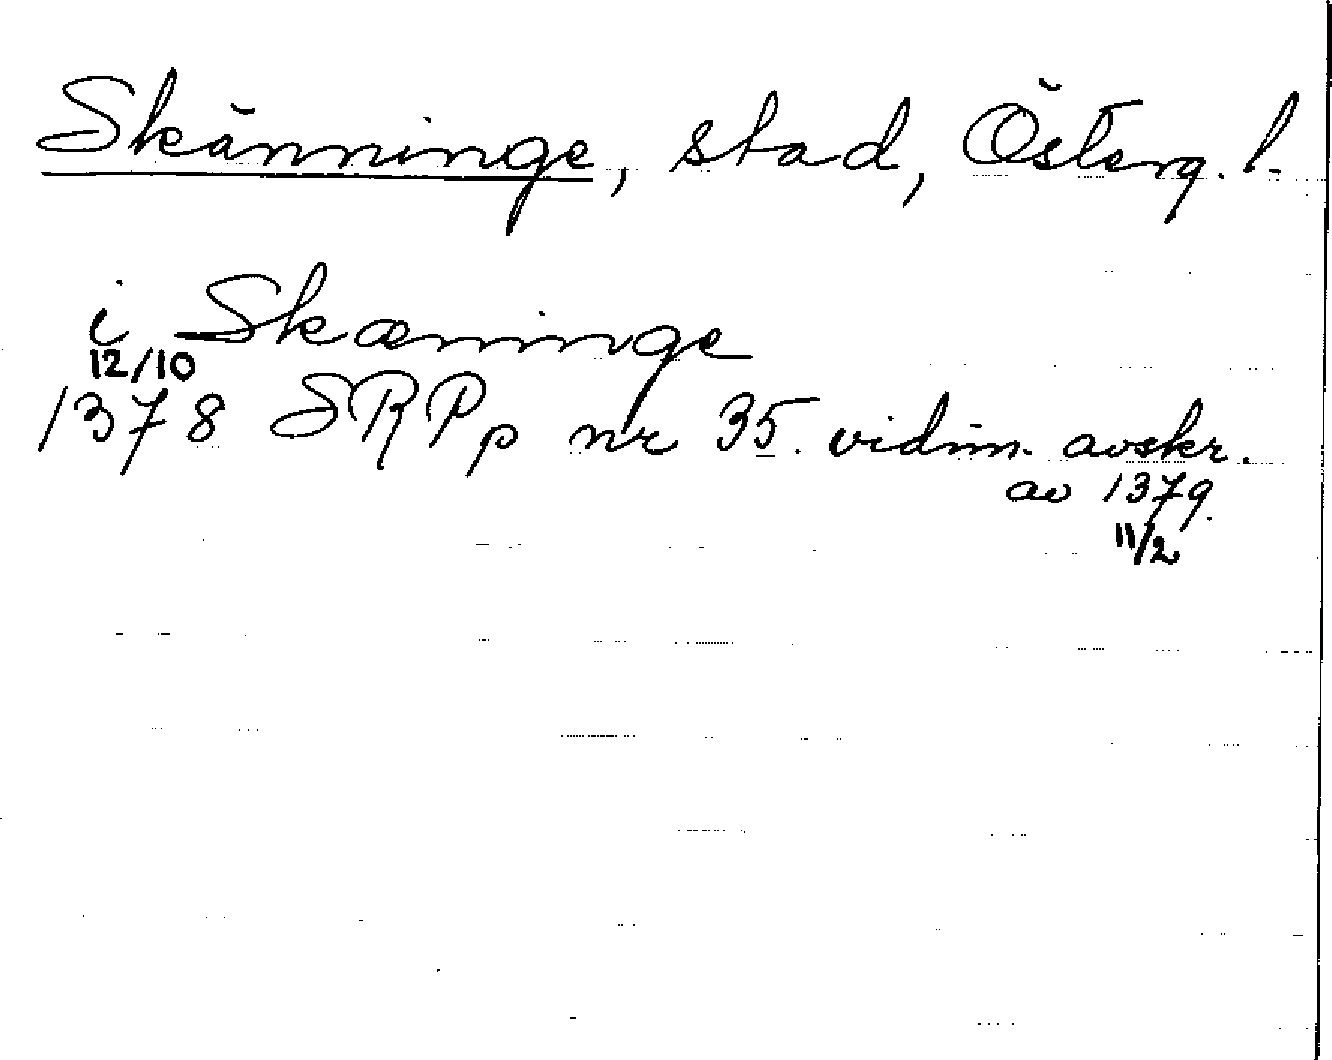 Skänninge, stad, Österg. l.
i Skæninge
12/10
1378 SRPp nr 35. vidim. avskr.
av 1379.
11/2